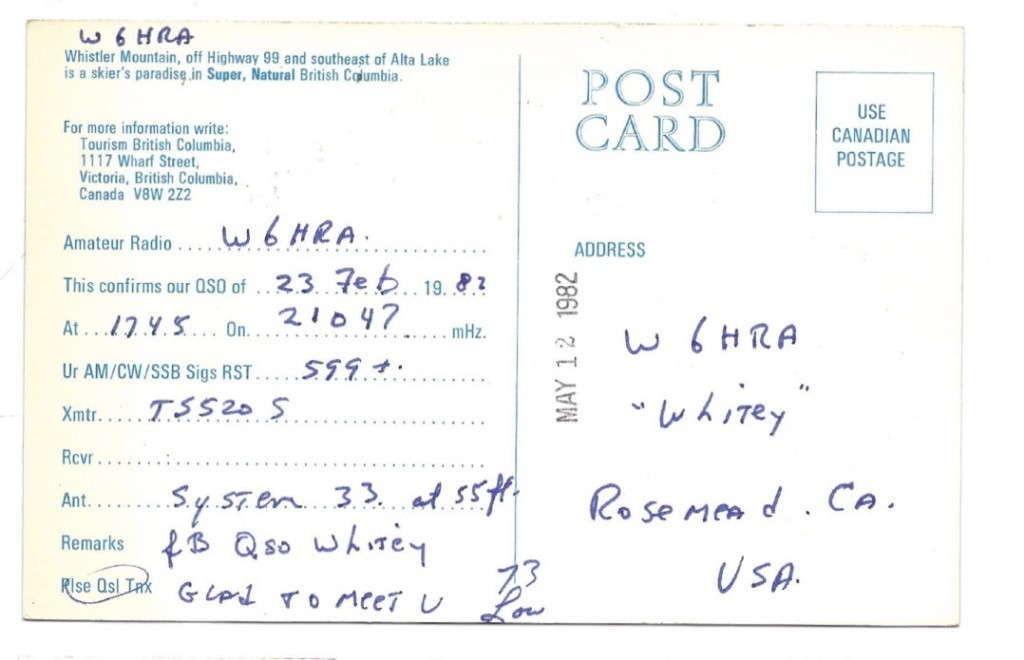 W6HRA
Whistler Mountain, off Highway 99 and southeast of Alta Lake
is a skier's paradise in Super, Natural British Columbia.
For more information write:
Tourism British Columbia,
1117 Wharf Street,
Victoria, British Columbia,
Canada V8W 2Z2
Amateur Radio W6HRA.
This confirms our QSO of 23 Feb 19 82
At 1745 On 21047 mHz.
Ur AM/CW/SSB Sigs RST 599+.
Xmtr. TS520 S
Rcvr
Ant. System 33. at 55ft.
Remarks fB Qso Whitey
Plse Qsl Tnx GLAd TO MEET U 73
Low
POST
CARD
USE
CANADIAN
POSTAGE
ADDRESS
MAY 12 1982
W6HRA
"Whitey"
Rosemead. CA.
USA.